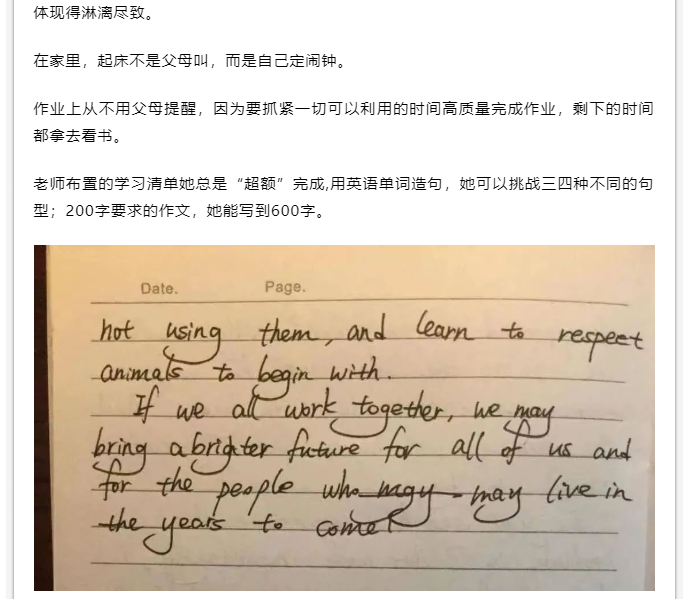 体现得淋漓尽致。
在家里，起床不是父母叫，而是自己定闹钟。
作业上从不用父母提醒，因为要抓紧一切可以利用的时间高质量完成作业，剩下的时间
都拿去看书。
老师布置的学习清单她总是“超额”完成,用英语单词造句，她可以挑战三四种不同的句
型；200字要求的作文，她能写到600字。
Date. Page.
not using them, and learn to respect
animals to begin with.
If we all work together, we may
bring a brighter future for all of us and
for the people who may may live in
the years to come!